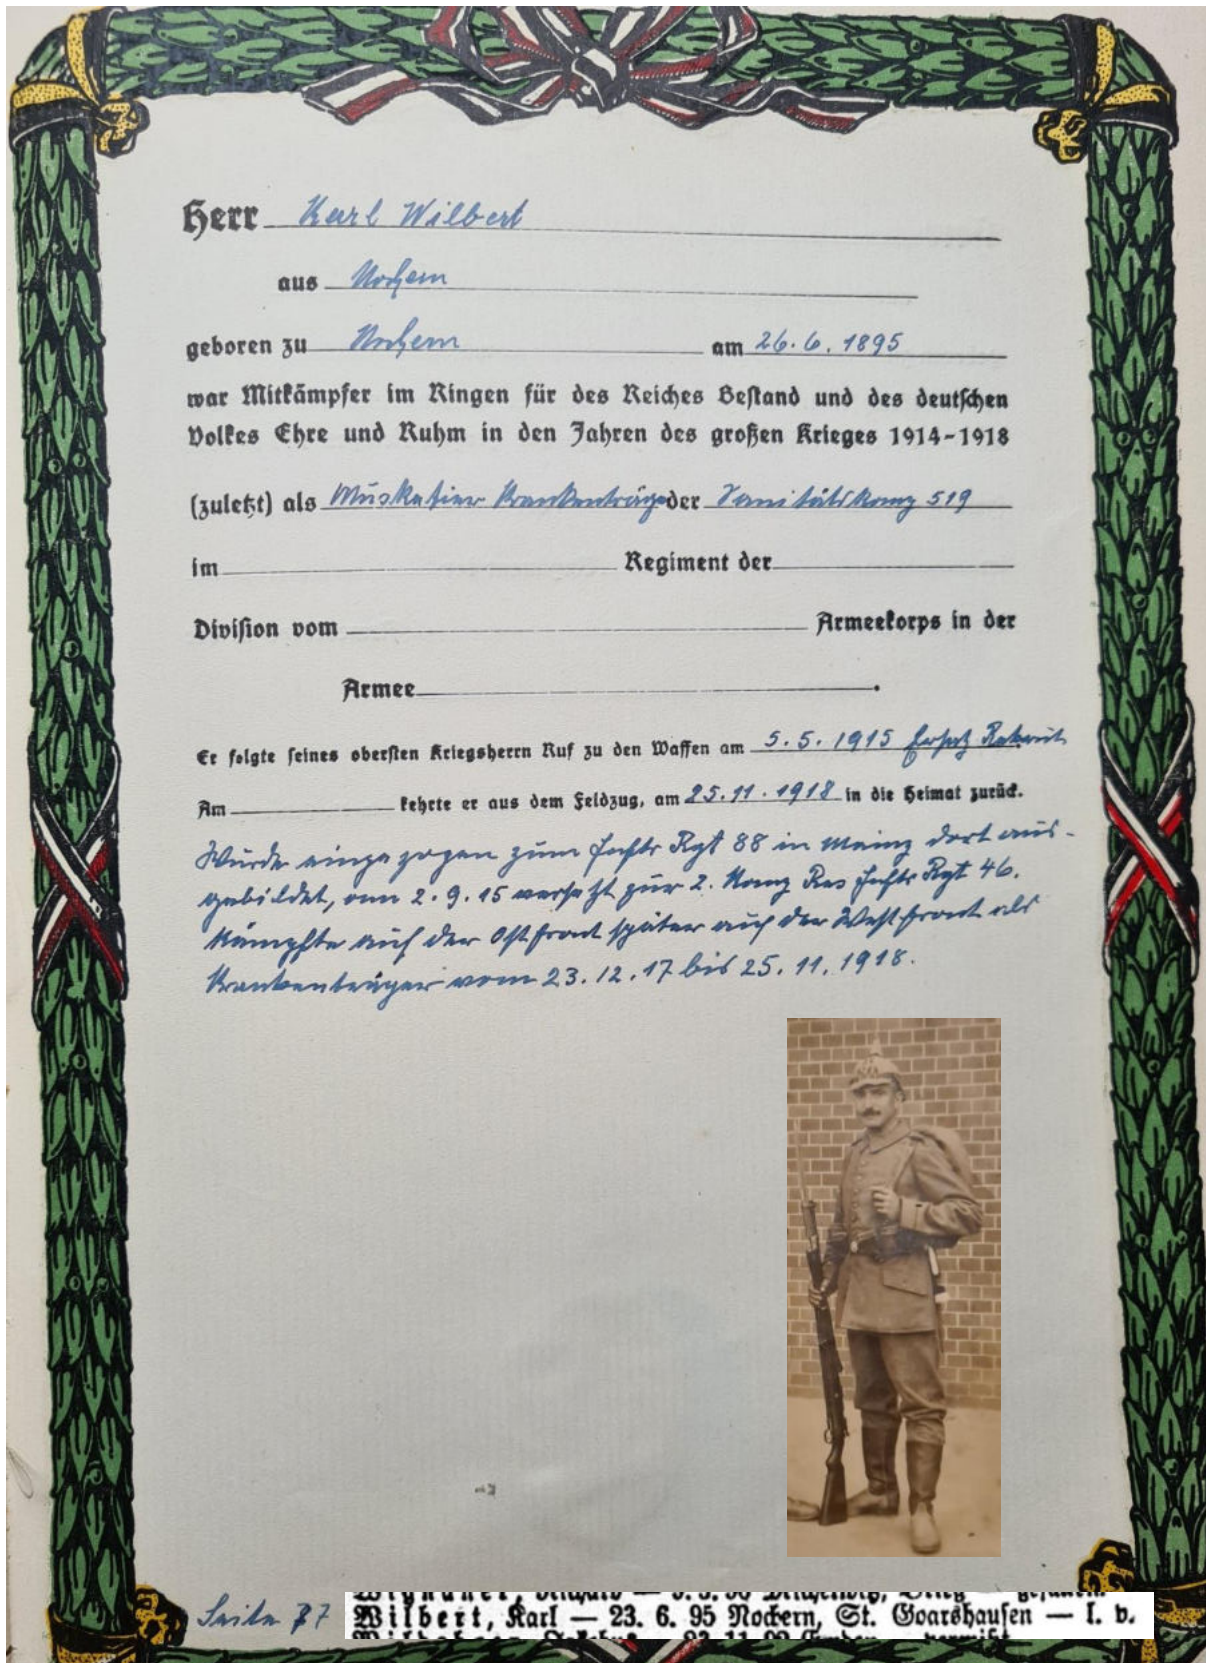 Herr Karl Wilbert
aus Nochern
geboren zu Nochern am 26. 6. 1895
war Mitkämpfer im Ringen für des Reiches Bestand und des deutschen
Volkes Ehre und Ruhm in den Jahren des großen Krieges 1914-1918
(zuletzt) als Musketier Krankenträger der Sanitätskomp 519
im Regiment der
Division vom Armeekorps in der
Armee.
Er folgte seines obersten Kriegsherrn Ruf zu den Waffen am 5. 5. 1915 Ersatz Rekrut
Am kehrte er aus dem Feldzug, am 25. 11. 1918 in die Heimat zurück.
Wurde eingezogen zum Inftr Rgt 88 in Mainz dort aus-
gebildet, am 2. 9. 15 versetzt zur 2. Komp Res Inftr Rgt 46.
Kämpfte auf der Ostfront später auf der Westfront als
Krankenträger vom 23. 12. 17 bis 25. 11. 1918.
Seite 77
Wilbert, Karl — 23. 6. 95 Nochern, St. Goarshausen — l. v.